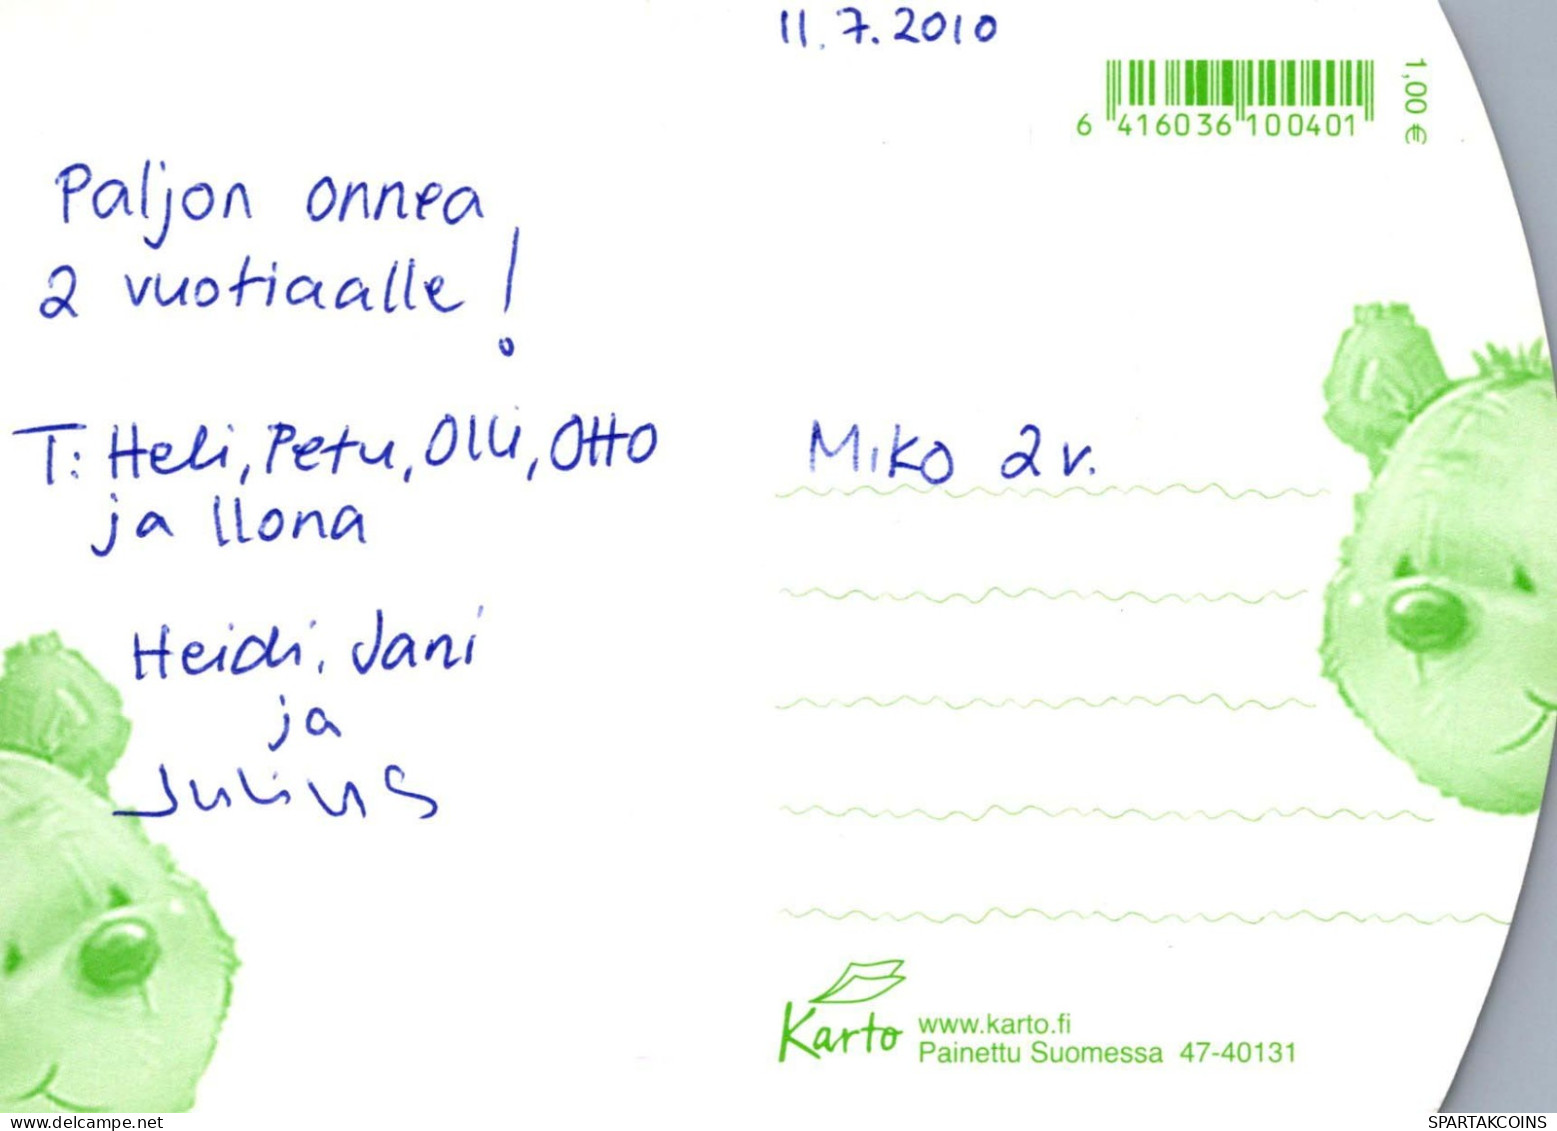 11.7.2010
1,00 €
6 416036 100401
Paljon onnea
2 vuotiaalle!
T: Heli, Petu, Olli, Otto
ja Ilona
Heidi, Jani
ja
Julius
Miko 2 v.
Karto
www.karto.fi
Painettu Suomessa 47-40131
delcampe.net
SPARTAKCOINS